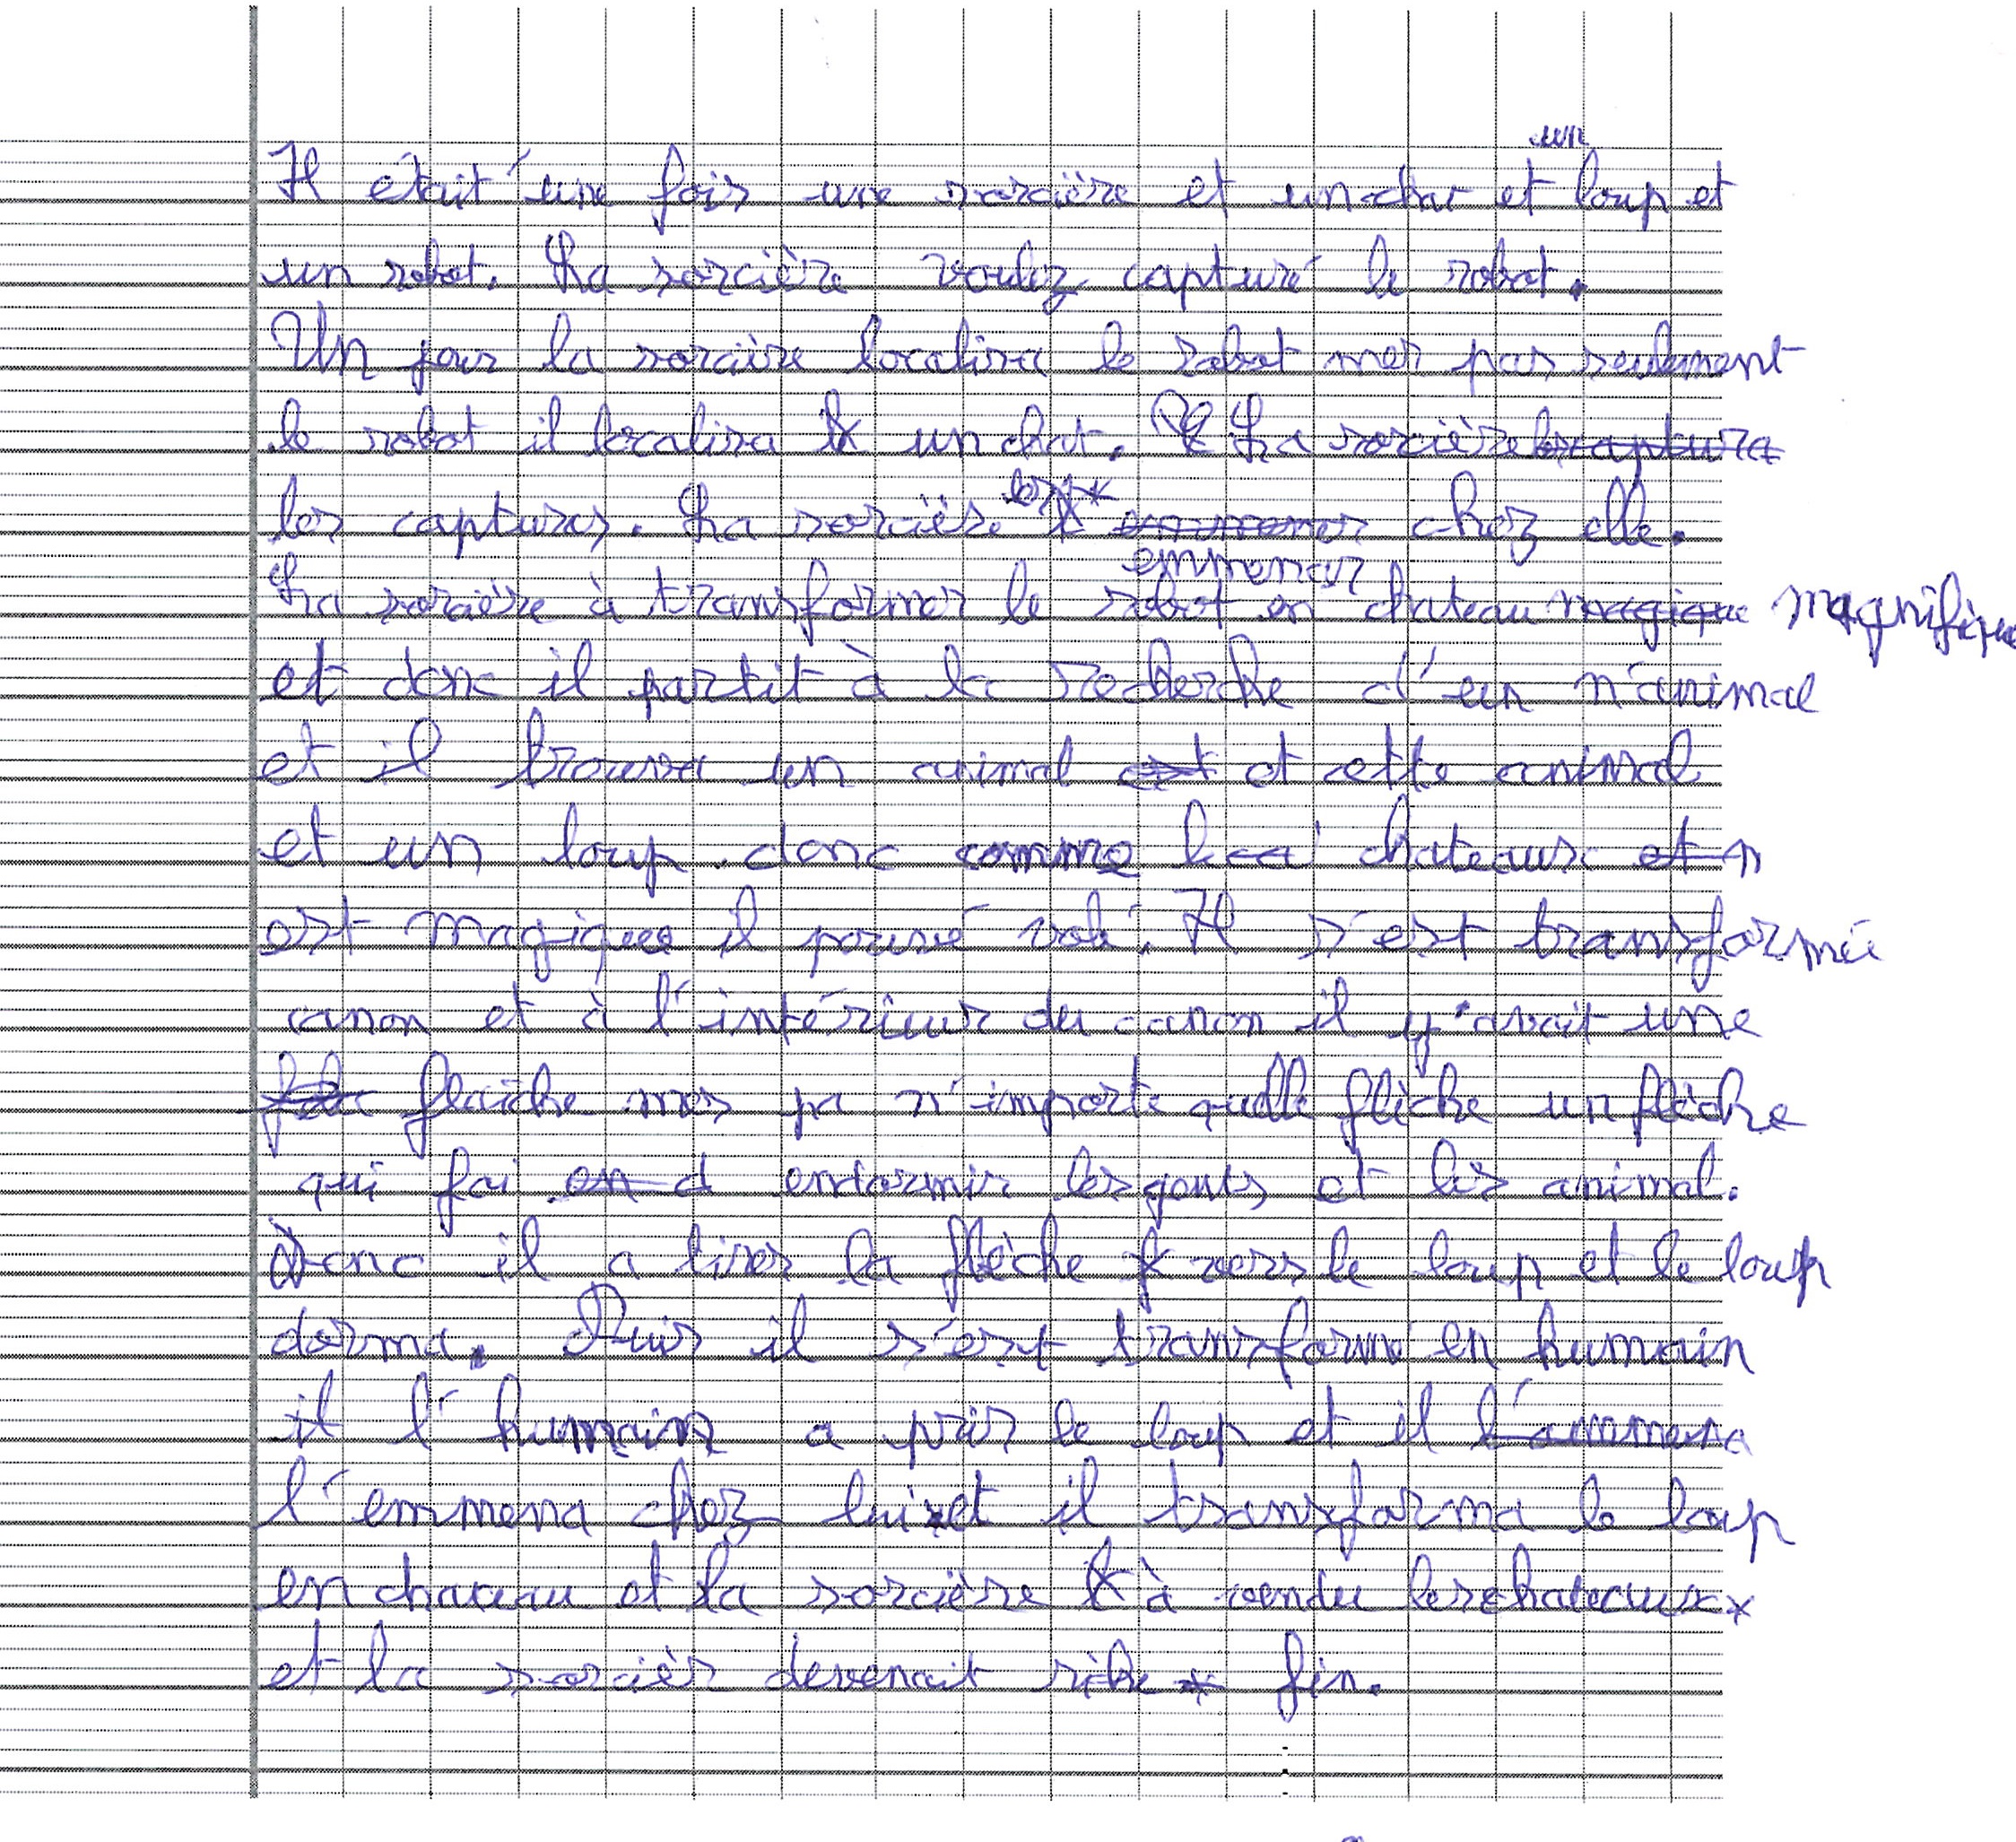 Il était une fois une sorcière et un chat et un loup et
un robot. La sorcière voulez capturé le robot.
Un jour la sorcière localisa le robot mes pas seulement
le robot il localisa un chat. La sorcière
les captures. La sorcière les emmener chez elle.
La sorcière à transformer le robot en chateau magnifique
et donc il partit à la recherche d'un n'animal
et il trouva un animal et cette animal
et un loup. donc comme le chateaux
est magiques il pouvé volé. Il s'est transformé
canon et à l'intérieur du canon il y'avait une
flaiche mes pa n'importe quelle flèche un flèche
qui fai endormir les gents et les animal.
Donc il a tirer la flèche vers le loup et le loup
dorma. Puis il s'est transformé en humain
l'humain a pris le loup et il
l'emmena chez lui et il transforma le loup
en chateau et la sorcière à vendu les chateaux
et la sorcièr devenait riche fin.